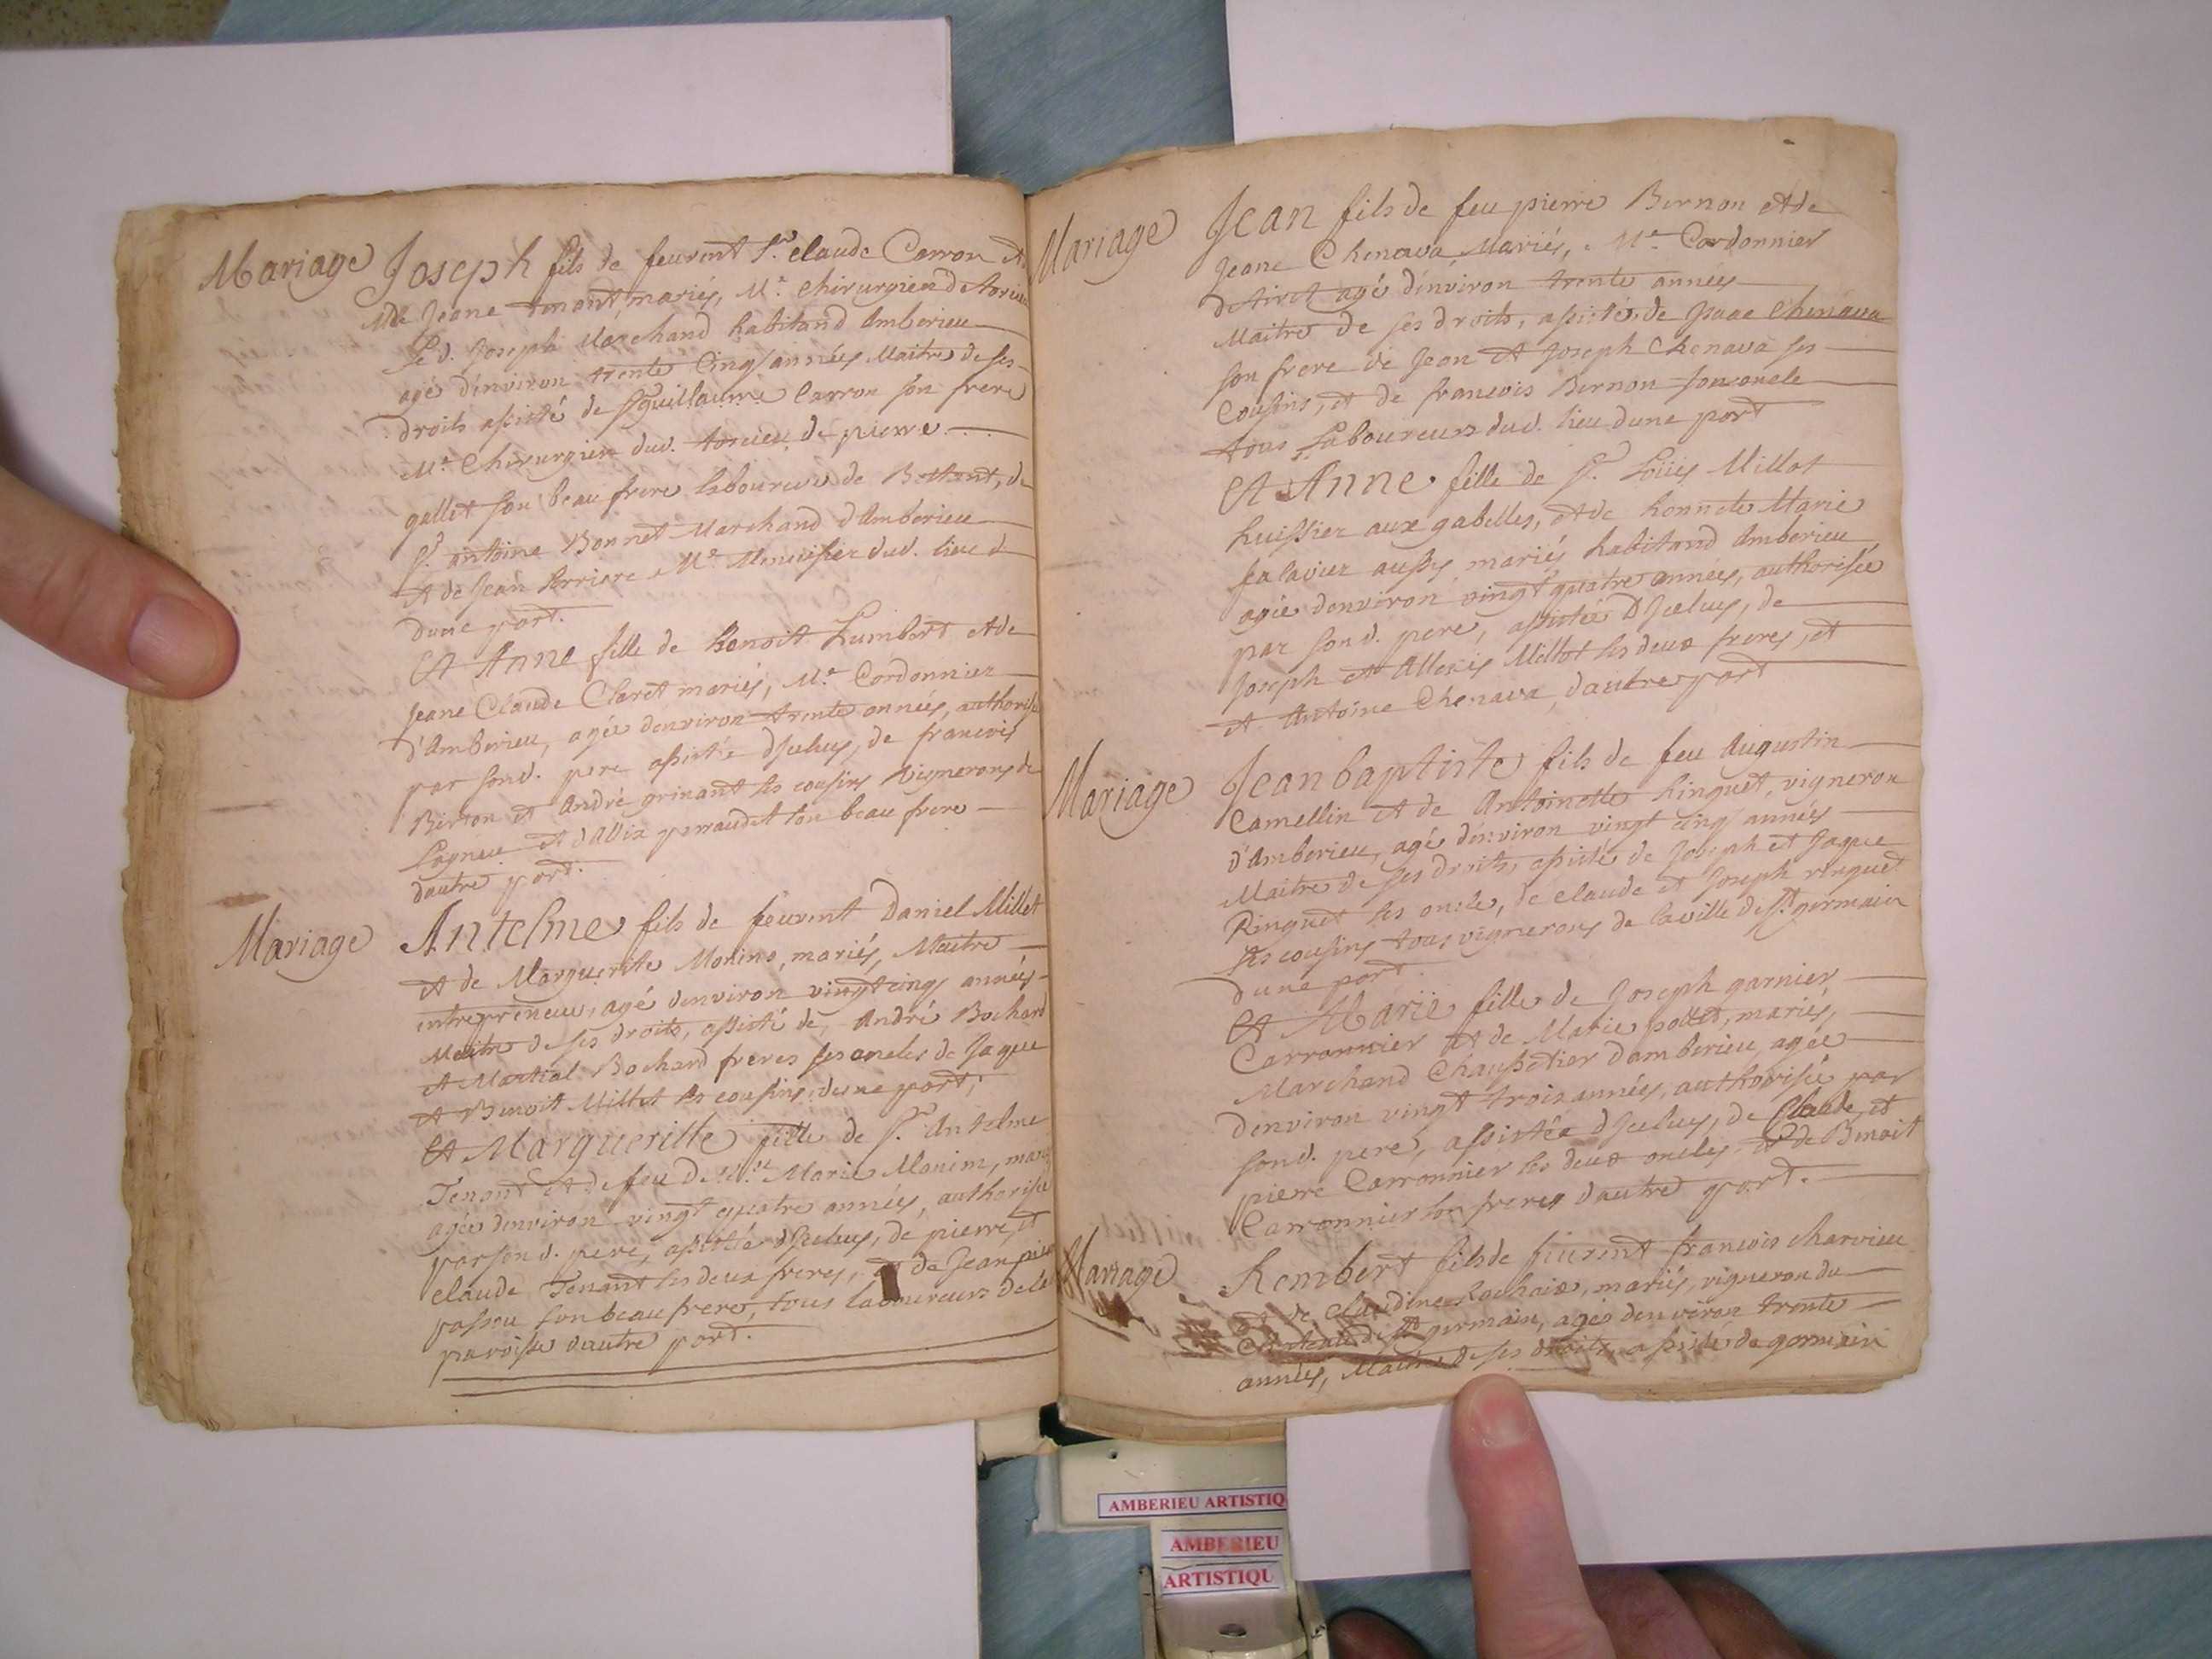 Mariage Joseph fils de feu vivent Sr. claude Carron et
de Jeane tenant mariés, Me. chirurgien de torcieu
Le d. Joseph Marchand habitand Amberieu
agé d'environ trente Cinq années Maitre de ses
droits assisté de Sr guillaume Carron son frere
Me. Chirurgien dud. torcieu de pierre
gallet son beau frere laboureur de Bettant, de
Sr. antoine Bonnet Marchand d'Amberieu
et de Jean Me. Menuisier dud. lieu d
dune part.
Et Anne fille de Benoit Humbert et de
Jeane Claude Claret mariés, Me. Cordonnier
d'Amberieu, agée denviron trente années, authorisée
par sond. pere assistée d'Jceluy, de francois
Birron et André grinant ses cousins vignerons de
Lagneu et d'Allix son beau frere
dautre part.
Mariage Antelme fils de feu vivent Daniel Millet
et de Marguerite Monino, mariés, Maitre
entrepreneur, agé denviron vingt cinq années
Maitre de ses droits, assisté de André Bochard
et Martial Bochard freres ses oncles de Jaque
et Benoit Millet ses cousins dune part,
Et Marguerille fille de Sr. Antelme
Tenant et de feu Delle. Marie Monim, mariés
agée denviron vingt quatre années, authorisée
par son d. pere, assistée d'Jceluy, de pierre, et
claude Tenant ses deux freres, et de Jean pierre
passou son beau frere, tous laboureurs de la
paroisse dautre part.
Mariage Jean fils de feu pierre Bernon et de
Jeane Chenava Mariés, Me. Cordonnier
agé d'environ trente années
Maitre de ses droits, assisté, de Jsaac Chenava
son frere de Jean et Joseph Chenava ses
Cousins, et de francois Bernon son oncle
tous Laboureurs dud. lieu dune part
Et Anne fille de Sr. Loüis Millot
huissier aux gabelles, et de honnete Marie
Jalavier aussy mariés habitand Amberieu
agée denviron vingt quatre années, authorisée
par son d. pere, assistée D'Jceluy, de
Joseph et Allexis Millot ses deux freres, et
et Antoine Chenava, dautre part
Mariage Jean baptiste fils de feu Augustin
Camellin et de Antoinette Ringuet, vigneron
d'Amberieu, agé d'environ vingt cinq années
Maitre de ses droits, assisté de Joseph et Jaque
Ringuet ses oncle, de claude et Joseph ringuet
ses cousins tous vignerons de la ville de St germain
dune part.
Et Marie fille de Joseph garnier
Carronnier et de Marie pollet, mariés,
Marchand Chaussetier damberieu, agée
denviron vingt trois années, authorisée par
sond. pere, assistée d'Jceluy, de Claude, et
pierre Carronnier ses deux oncles, et de Benoit
Carronnier son frere dautre part.
Mariage Rembert fils de feu vivent francois charvieu
et de Claudine Rochaix, mariés, vigneron du
Chateau de St germain, agés denviron trente
années, Maitre de ses droits, assisté de germain
AMBERIEU ARTISTIQ
AMBERIEU
ARTISTIQU